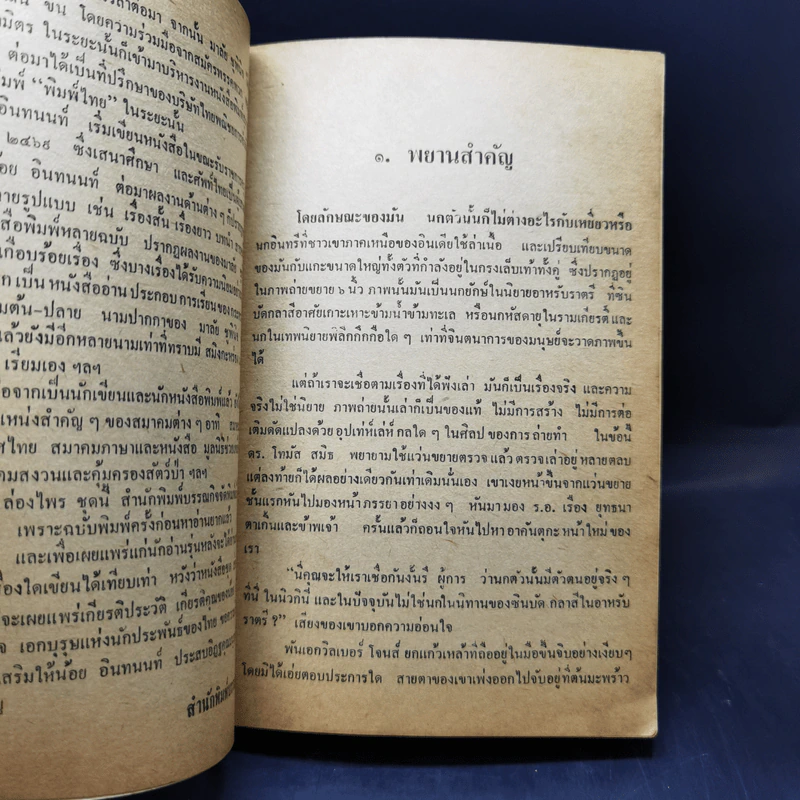 ขึ้น โดยความร่วมมือจากสมัครพรรคพวก
มิตร ในระยะนั้นก็เข้ามาบริหารงานหนังสือพิมพ์
ต่อมาได้เป็นที่ปรึกษาของบริษัทไทยพณิชยการ
พิมพ์ “พิมพ์ไทย” ในระยะนั้น
อินทนนท์ เริ่มเขียนหนังสือในขณะรับราชการ
๒๔๖๙ ซึ่งเสนาศึกษา และศัพท์ไทยเป็น
น้อย อินทนนท์ ต่อมาผลงานด้านต่าง ๆ ก็ปรากฏ
ายรูปแบบ เช่น เรื่องสั้น เรื่องยาว บทนำ
สือพิมพ์หลายฉบับ ปรากฏผลงานของมาลัย
เกือบร้อยเรื่อง ซึ่งบางเรื่องได้รับความนิยม
ก เป็น หนังสืออ่าน ประกอบ การเรียน ของ
มต้น-ปลาย นามปากกาของ มาลัย ชูพินิจ
แล้วยังมีอีกหลายนามเท่าที่ทราบมี สมิงกะหร่อง
เรียมเอง ฯลฯ
อจากเป็นนักเขียนและนักหนังสือพิมพ์แล้ว
แหน่งสำคัญ ๆ ของสมาคมต่าง ๆ อาทิ
ศไทย สมาคมภาษาและหนังสือ มูลนิธิช่วย
คมสงวนและคุ้มครองสัตว์ป่า ฯลฯ
ล่องไพร ชุดนี้ สำนักพิมพ์บรรณกิจจัดพิมพ์
เพราะฉบับพิมพ์ครั้งก่อนหาอ่านยากแล้ว
และเพื่อเผยแพร่แก่นักอ่านรุ่นหลังจะได้
รื่องใดเขียนได้เทียบเท่า หวังว่าหนังสือชุด
จะเผยแพร่เกียรติประวัติ เกียรติคุณของ
จ เอกบุรุษแห่งนักประพันธ์ของไทย
เสริมให้น้อย อินทนนท์ ประสบ
สำนักพิมพ์
๑. พยานสำคัญ
โดยลักษณะของมัน นกตัวนั้นก็ไม่ต่างอะไรกับเหยี่ยวหรือ
นกอินทรีที่ชาวเขาภาคเหนือของอินเดียใช้ล่าเนื้อ และเปรียบเทียบขนาด
ของมันกับแกะขนาดใหญ่ทั้งตัวที่กำลังอยู่ในกรงเล็บเท้าทั้งคู่ ซึ่งปรากฏอยู่
ในภาพถ่ายขยาย ๖ นิ้ว ภาพนั้นมันเป็นนกยักษ์ในนิยายอาหรับราตรี ที่ซิน
บัดกลาสีอาศัยเกาะเหาะข้ามน้ำข้ามทะเล หรือนกหัสดายุในรามเกียรติ์ และ
นกในเทพนิยายพิลึกกึกกือใด ๆ เท่าที่จินตนาการของมนุษย์จะวาดภาพขึ้น
ได้
แต่ถ้าเราจะเชื่อตามเรื่องที่ได้ฟังเล่า มันก็เป็นเรื่องจริง และความ
จริงไม่ใช่นิยาย ภาพถ่ายนั้นเล่าก็เป็นของแท้ ไม่มีการสร้าง ไม่มีการต่อ
เติมดัดแปลงด้วยอุปเท่ห์เล่ห์กลใด ๆ ในศิลปของการถ่ายทำ ในข้อนี้
ดร. โทมัส สมิธ พยายามใช้แว่นขยายตรวจแล้วตรวจเล่าอยู่หลายตลบ
แต่ลงท้ายก็ได้ผลอย่างเดียวกันเท่าเดิมนั้นเอง เขาเงยหน้าขึ้นจากแว่นขยาย
ชั้นแรกหันไปมองหน้าภรรยาอย่างงง ๆ หันมามอง ร.อ. เรือง ยุทธนา
ตาเกิ้นและข้าพเจ้า ครั้นแล้วก็ถอนใจหันไปหาอาคันตุกะหน้าใหม่ของ
เรา
“นี่คุณจะให้เราเชื่อกันงั้นรึ ผู้การ ว่านกตัวนั้นมีตัวตนอยู่จริง ๆ
ที่นี่ ในนิวกินี และในปัจจุบันไม่ใช่นกในนิทานของซินบัด กลาสีในอาหรับ
ราตรี ?” เสียงของเขาบอกความอ่อนใจ
พันเอกวิลเบอร์ โจนส์ ยกแก้วเหล้าที่ถืออยู่ในมือขึ้นจิบอย่างเงียบๆ
โดยมิได้เอ่ยตอบประการใด สายตาของเขาเพ่งออกไปจับอยู่ที่ต้นมะพร้าว